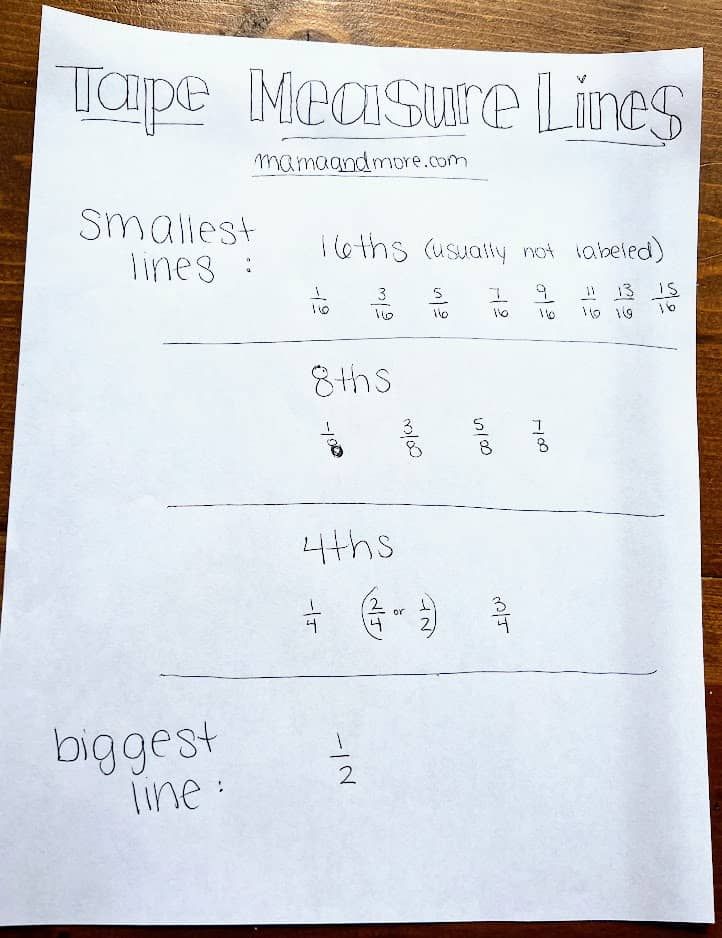 Tape Measure Lines
mamaandmore.com
smallest
lines :
16ths (usually not labeled)
1/16 3/16 5/16 7/16 9/16 11/16 13/16 15/16
8ths
1/8 3/8 5/8 7/8
4ths
1/4 (2/4 or 1/2) 3/4
biggest
line :
1/2